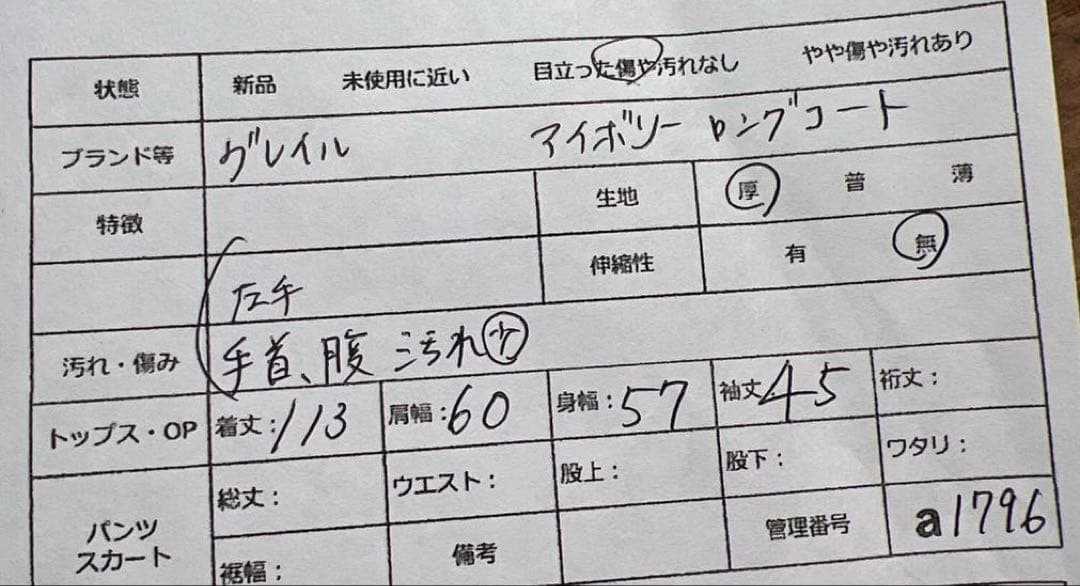 状態 新品 未使用に近い 目立った傷や汚れなし やや傷や汚れあり
ブランド等 グレイル アイボリー ロングコート
特徴 生地 厚 普 薄
左手 伸縮性 有 無
汚れ・傷み 手首、腹 汚れ 少
トップス・OP 着丈:113 肩幅:60 身幅:57 袖丈45 裄丈:
パンツ 総丈: ウエスト: 股上: 股下: ワタリ:
スカート 裾幅: 備考 管理番号 a1796